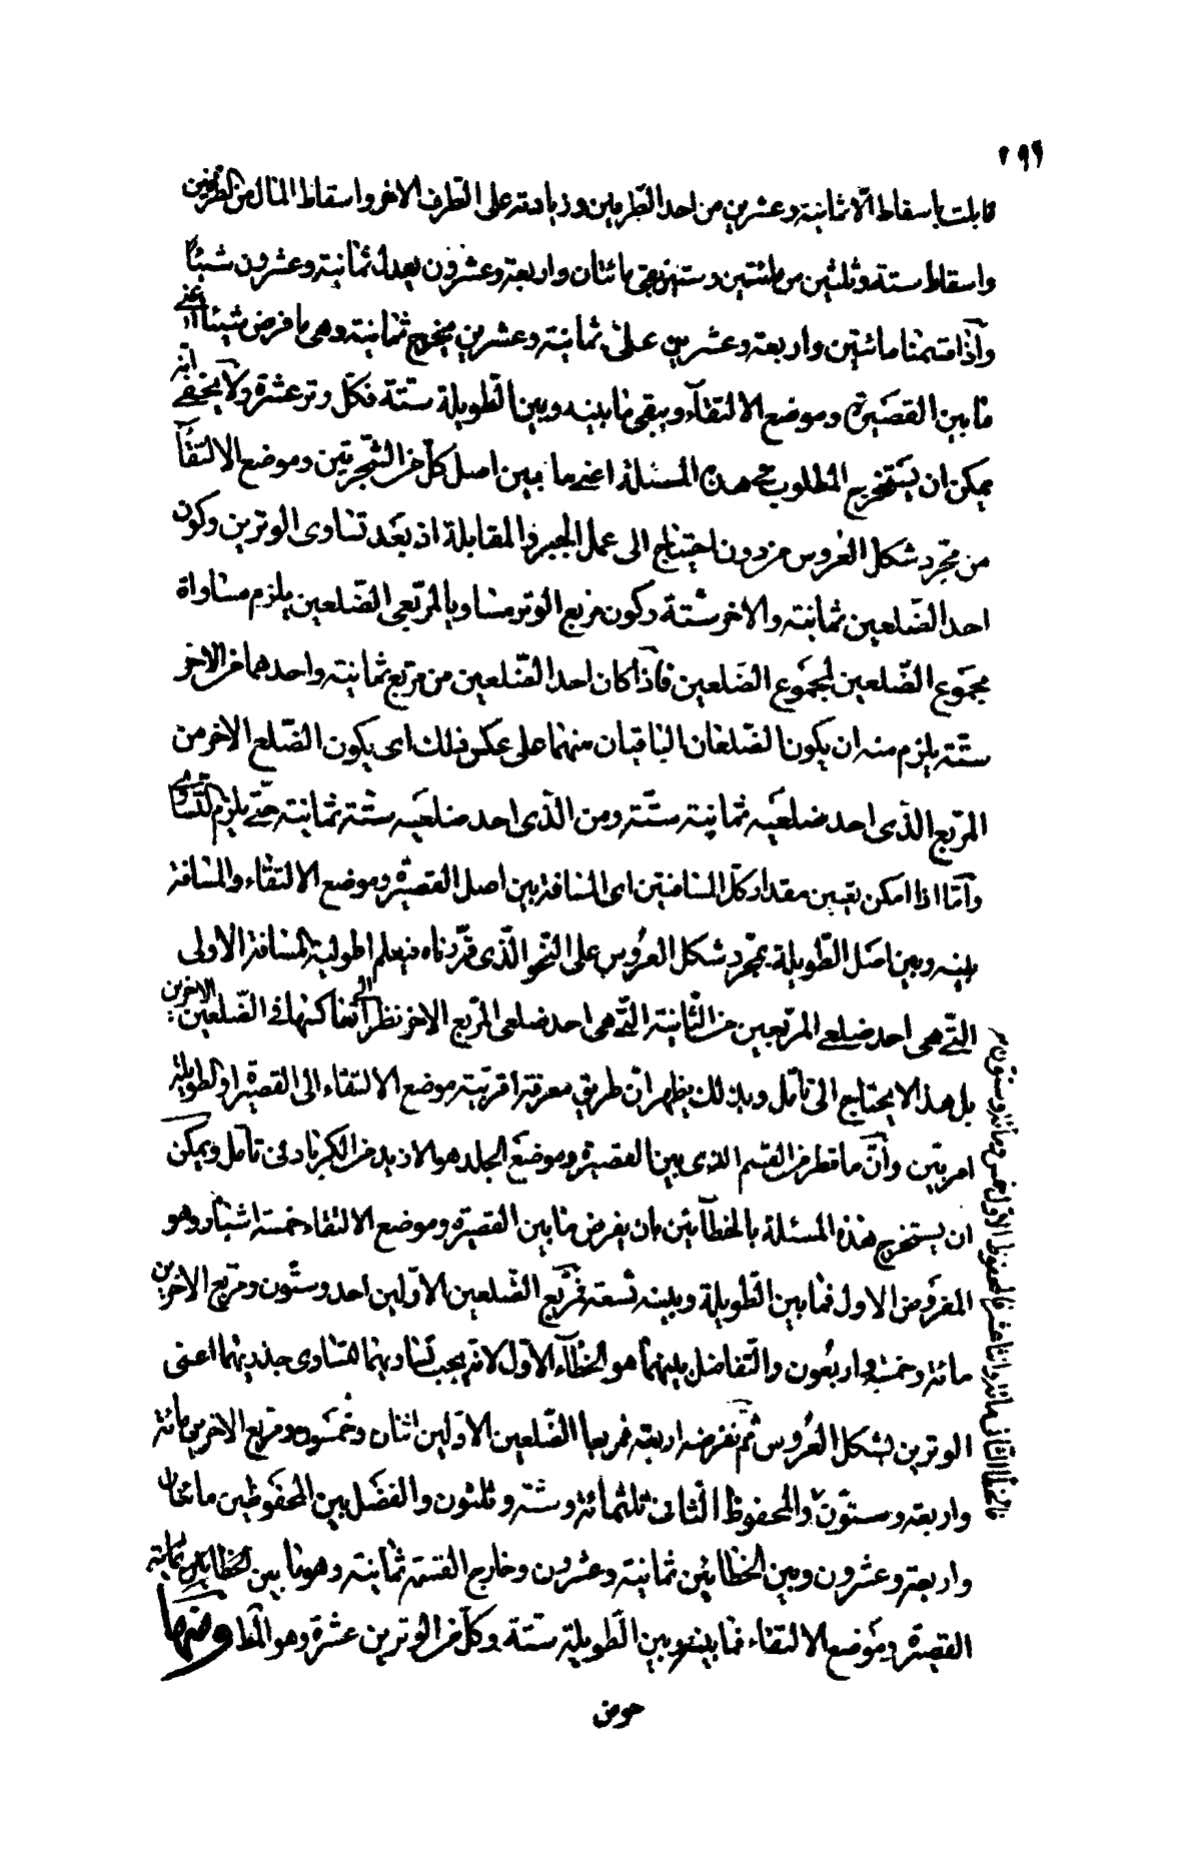 ٢٩٩
قابلت باسقاط الّا ثمانية وعشرين من احد الطرفين وزيادته على الطرف الاخر واسقاط المال من الطرفين
واسقاط ستة وثلثين من مائتين وستين بقى مائتان واربعة وعشرون يعدل ثمانية وعشرون شيئا
وآذا قسمنا مائتين واربعة وعشرين على ثمانية وعشرين يخرج ثمانية وهى ما فرض شيئا اعنى
ما بين القصيرة وموضع الالتقاء ويبقى ما بينه وبين الطويلة ستة فكل وتر عشرة ولا يخفى انه
يمكن ان يستخرج المطلوب فى هذه المسئلة اعنى ما بين اصل كل من الشجرتين وموضع الالتقآ
من مجرد شكل العروس من دون احتياج الى عمل الجبر والمقابلة اذ بعد تساوى الوترين وكون
احد الضلعين ثمانية والاخر ستة وكون مربع الوتر مساويا لمربعى الضلعين يلزم مساواة
مجموع الضلعين لمجموع الضلعين فآذا كان احد الضلعين من مربع ثمانية واحدهما من الاخر
ستة يلزم منه ان يكون الضلعان الباقيان منهما على عكس ذلك اى يكون الضلع الاخر من
المربع الذى احد ضلعيه ثمانية ستة ومن الذى احد ضلعيه ستة ثمانية حتى يلزم التساوى
وآمّا اذا امكن تعيين مقدار كل المسافتين اى المسافة بين اصل القصيرة وموضع الالتقاء والمسافة
بينه وبين اصل الطويلة بمجرد شكل العروس على النحو الذى قررناه فيعلم اطولية المسافة الاولى
التى هى احد ضلعى المربعين من الثانية التى هى احد ضلعى المربع الاخر نظرا الى انعاكسها فى الضلعين الاخرين
بل هذا لا يحتاج الى تامل وبذلك يظهر ان طريق معرفة اقربية موضع الالتقاء الى القصيرة او الطويلة
امر بيّن وآنّ ما قطر من القسم الذى بين القصيرة وموضع الجلد هو الازيد من الكر بادنى تامل ويمكن
ان يستخرج هذه المسئلة بالخطآئين بان يفرض ما بين القصيرة وموضع الالتقاء خمسة اشبار وهو
المفروض الاول فما بين الطويلة وبينه تسعة فمربع الضلعين الاولين احد وستون ومربع الاخرين
مائة وخمسة واربعون والتفاضل بينهما هو الخطآء الاول لانه يجب تساويهما لتساوى جذريهما اعنى
الوترين لشكل العروس ثم نفرضه اربعة فمربعا الضلعين الاولين اثنان وخمسون ومربع الاخرين مائة
واربعة وستون والمحفوظ الثانى ثلثمائة وستة وثلثون والفضل بين المحفوظين مائتان
واربعة وعشرون وبين الخطائين ثمانية وعشرون وخارج القسمة ثمانية وهو ما بين
القصيرة وموضع الالتقاء فما بينه وبين الطويلة ستة وكل من الوترين عشرة وهو المط ومنها
فالخطأ الثانى مائة واثنا عشر فالمحفوظ الاول خمس ومائة وستون
حوض